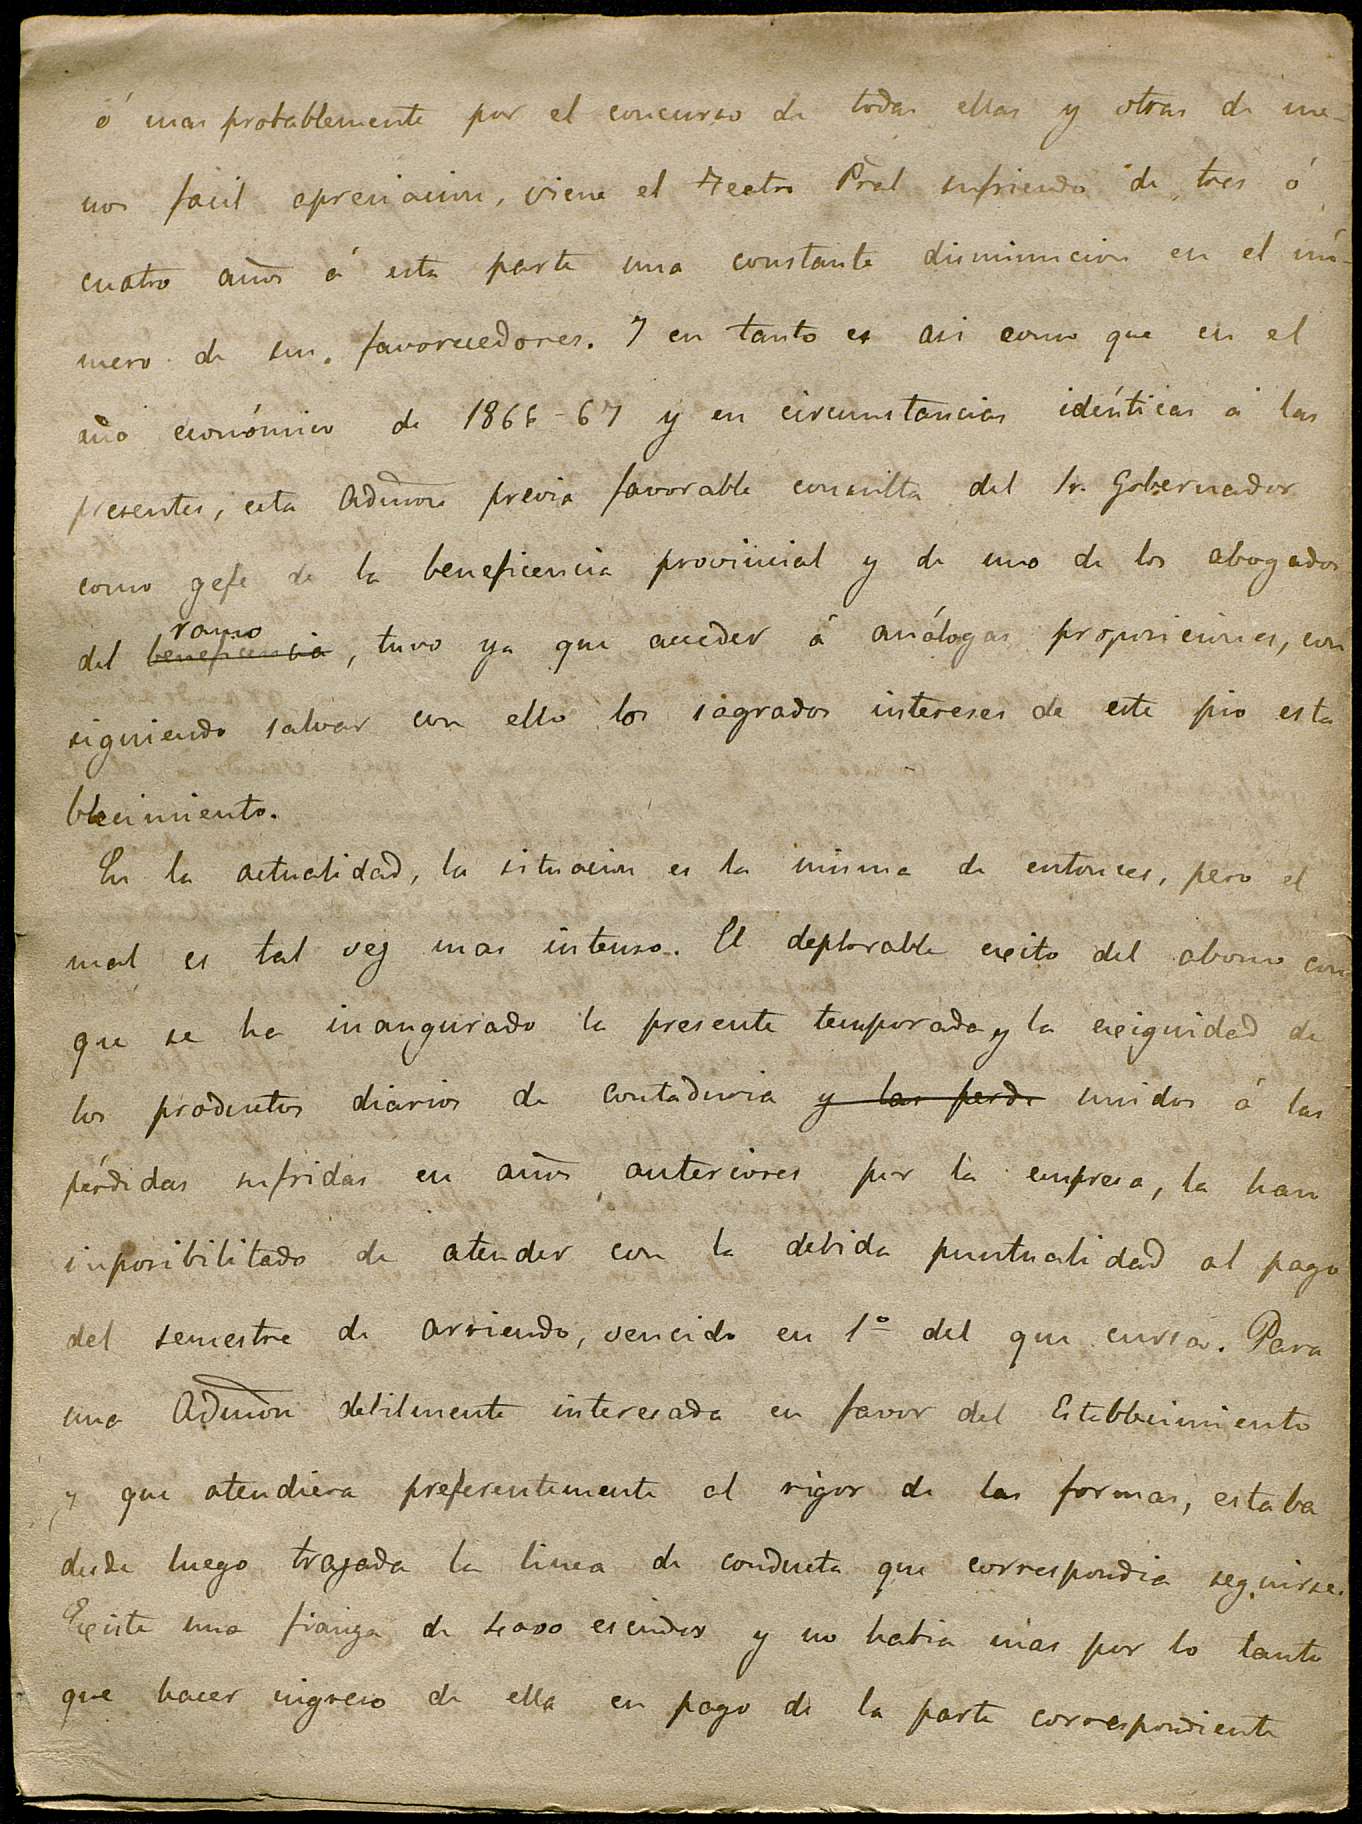 ó mas probablemente por el concurso de todas ellas y otras de me-
nos facil apreciacion, viene el Teatro Pral sufriendo de tres ó
cuatro años á esta parte una constante disminucion en el nú-
mero de sus favorecedores. Y en tanto es asi como que en el
año económico de 1866-67 y en circunstancias idénticas á las
presentes, esta Admon previa favorable consulta del Sr. Gobernador
como gefe de la beneficencia provincial y de uno de los abogados
del beneficencia ramo, tuvo ya que acceder á análogas proposiciones, con
siguiendo salvar con ello los sagrados intereses de este pio esta
blecimiento.
En la actualidad, la situacion es la misma de entonces, pero el
mal es tal vez mas intenso. El deplorable exito del abono con
que se ha inaugurado la presente temporada y la exiguidad de
los productos diarios de contaduria y las perdi unidos á las
pérdidas sufridas en años anteriores por la empresa, la han
inposibilitado de atender con la debida puntualidad al pago
del semestre de arriendo, vencido en 1º del que cursa. Para
una Admon debilmente interesada en favor del Establecimiento
y que atendiera preferentemente al rigor de las formas, estaba
desde luego trazada la linea de conducta que correspondia seguirse.
Existe una fianza de escudos y no habia mas por lo tanto
que hacer ingreso de ella en pago de la parte correspondiente